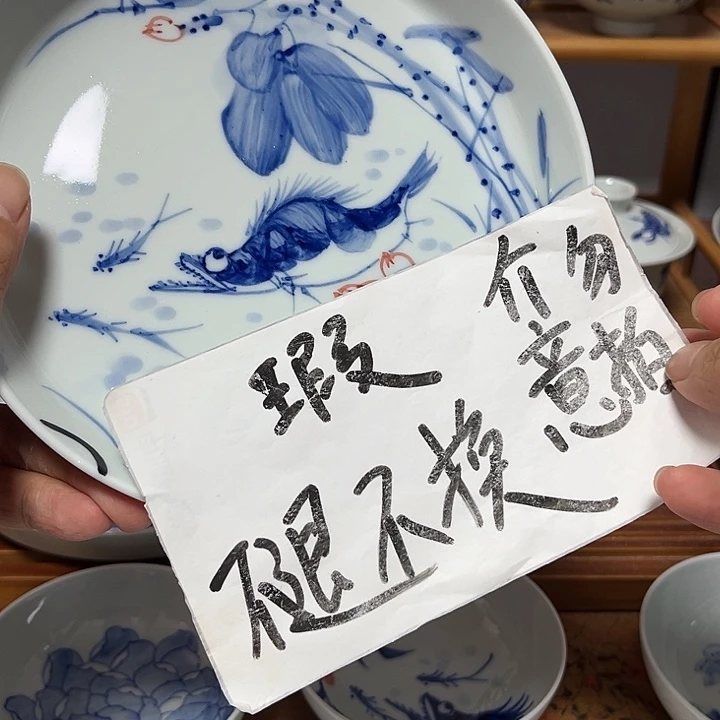 瑕
不退不换
介勿
意拍